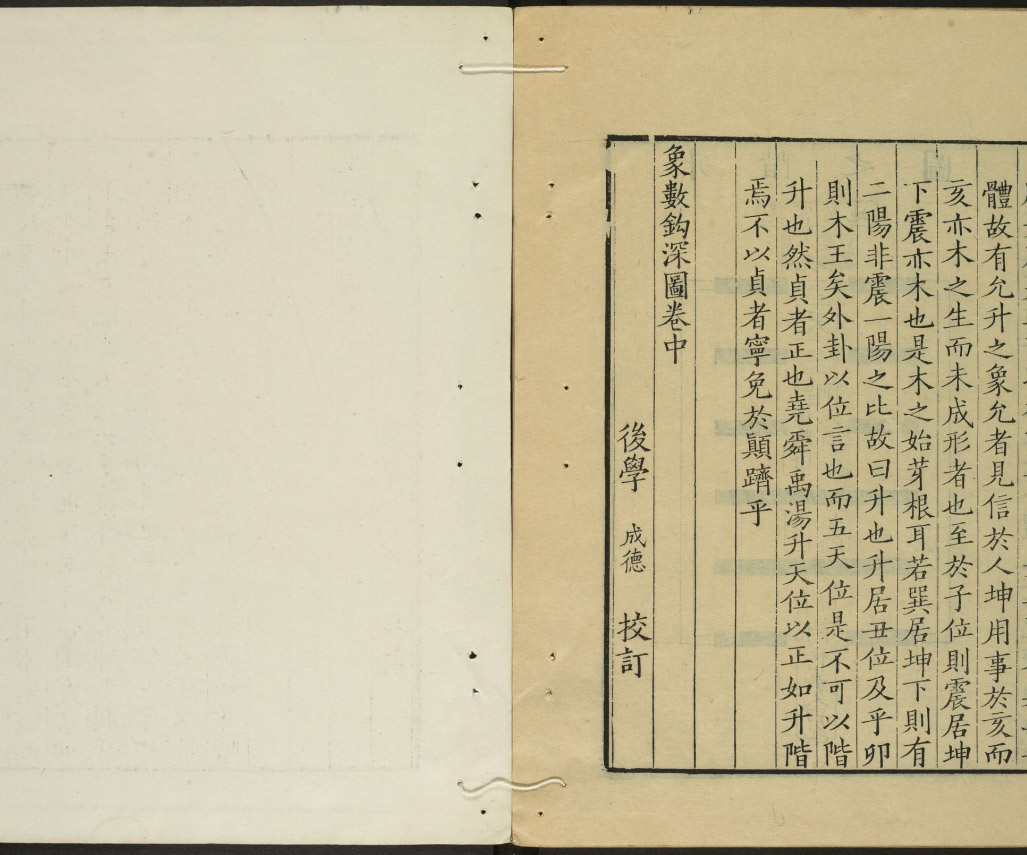 體故有允升之象允者見信於人坤用事於亥而
亥亦木之生而未成形者也至於子位則震居坤
下震亦木也是木之始芽根耳若巽居坤下則有
二陽非震一陽之比故曰升也升居丑位及乎卯
則木王矣外卦以位言也而五天位是不可以階
升也然貞者正也堯舜禹湯升天位以正如升階
焉不以貞者寧免於顛躋乎
象數鈎深圖卷中
後學 成德 挍訂